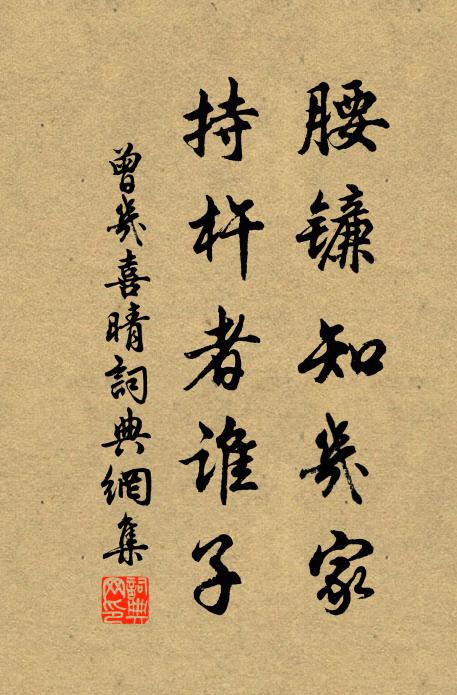 腰镰知幾家
持杵者谁子
曾幾喜晴詞典網集
詞典网印